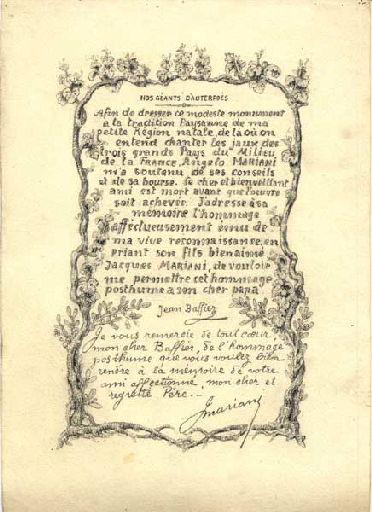 NOS GÉANTS D'AUTERFOÉS
Afin de dresser ce modeste monument
à la tradition Paysanne de ma
petite Région natale, de là où on
entend chanter les jaux des
trois grands Pays du Milieu
de la France, Angelo MARIANI
m'a soutenu de ses conseils
et de sa bourse. Ce cher et bienveillant
ami est mort avant que l'œuvre
soit achever. J'adresse à sa
mémoire l'hommage
affectueusement ému de
ma vive reconnaissance, en
priant son fils bienaimé
Jacques MARIANI, de vouloir
me permettre cet hommage
posthume à son cher papa
Jean Baffier
Je vous remercie de tout cœur
mon cher Baffier, de l'hommage
posthume que vous voulez bien
rendre à la mémoire de votre
ami affectionné, mon cher et
regretté Père. -
J mariani